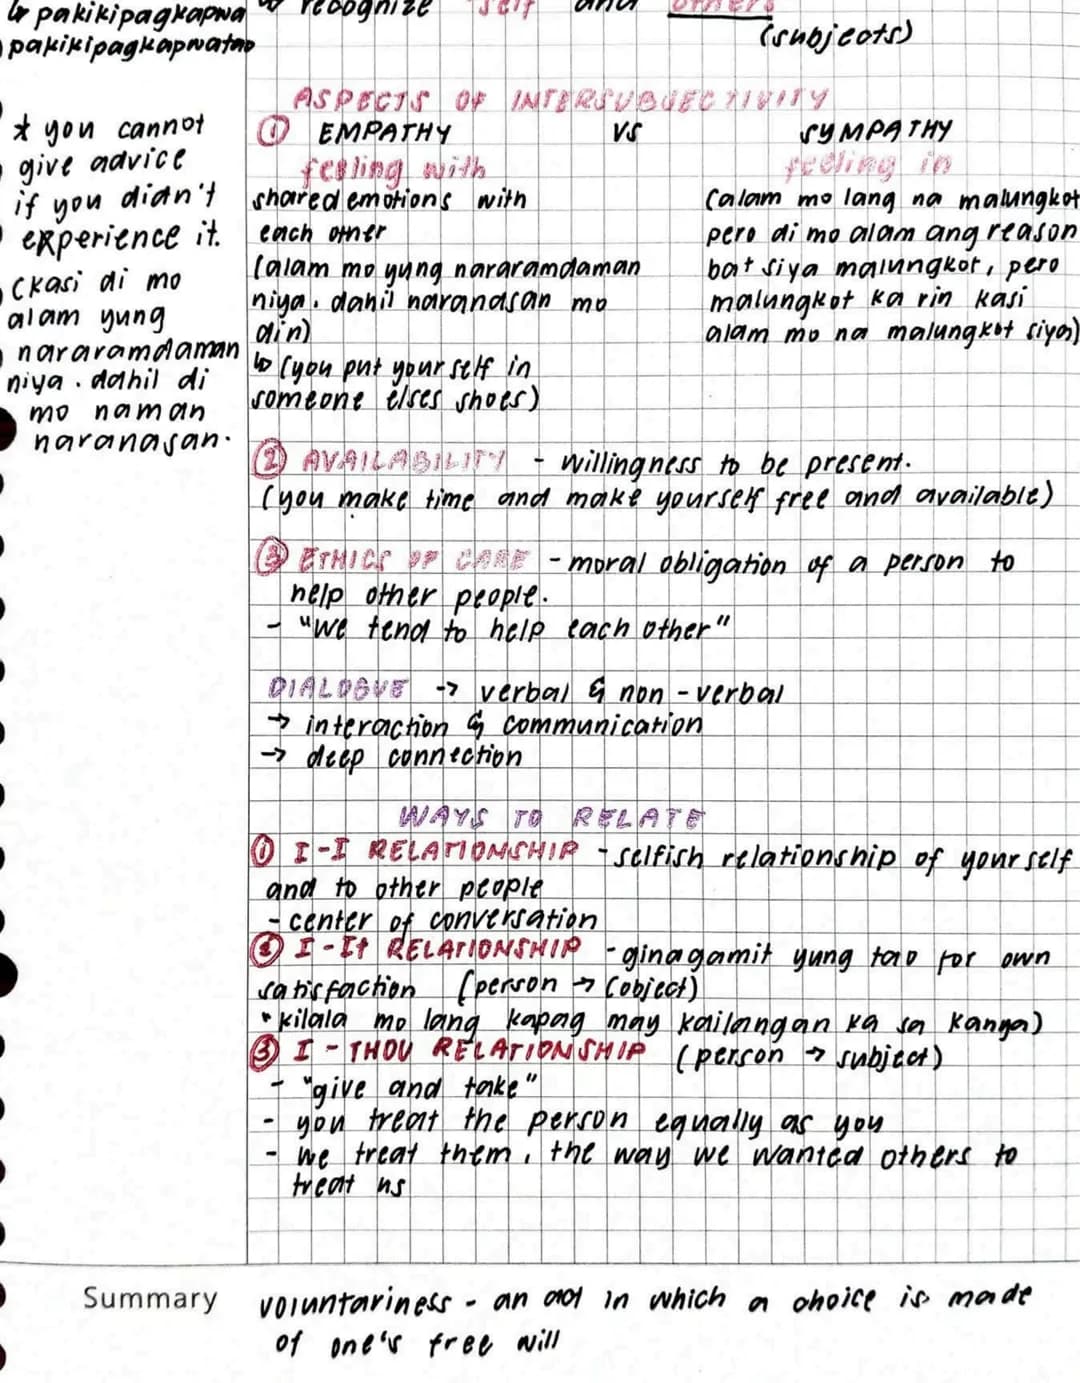 ↳ pakikipagkapwa
pakikipagkapwatao
↳ recognize "self" and others
(subjects)
* you cannot
give advice
if you didn't
experience it.
(kasi di mo
alam yung
nararamdaman
niya. dahil di
mo naman
naranasan.
ASPECTS OF INTERSUBJECTIVITY
① EMPATHY VS SYMPATHY
feeling with
shared emotions with
each other
(alam mo yung nararamdaman
niya. dahil naranasan mo
din)
↳ (you put yourself in
someone elses shoes)
feeling in
(alam mo lang na malungkot
pero di mo alam ang reason
bat siya malungkot, pero
malungkot ka rin kasi
alam mo na malungkot siya)
② AVAILABILITY - willingness to be present.
(you make time and make yourself free and available)
③ ETHICS OF CARE - moral obligation of a person to
help other people.
- "we tend to help each other"
DIALOGUE -> verbal & non-verbal
-> interaction & communication
-> deep connection
WAYS TO RELATE
① I-I RELATIONSHIP - selfish relationship of yourself
and to other people
- center of conversation
② I-It RELATIONSHIP - ginagamit yung tao for own
satisfaction (person -> (object)
• kilala mo lang kapag may kailangan ka sa kanya)
③ I - THOU RELATIONSHIP (person -> subject)
- "give and take"
- you treat the person equally as you
- we treat them, the way we wanted others to
treat us
Summary
voluntariness - an act in which a choice is made
of one's free will